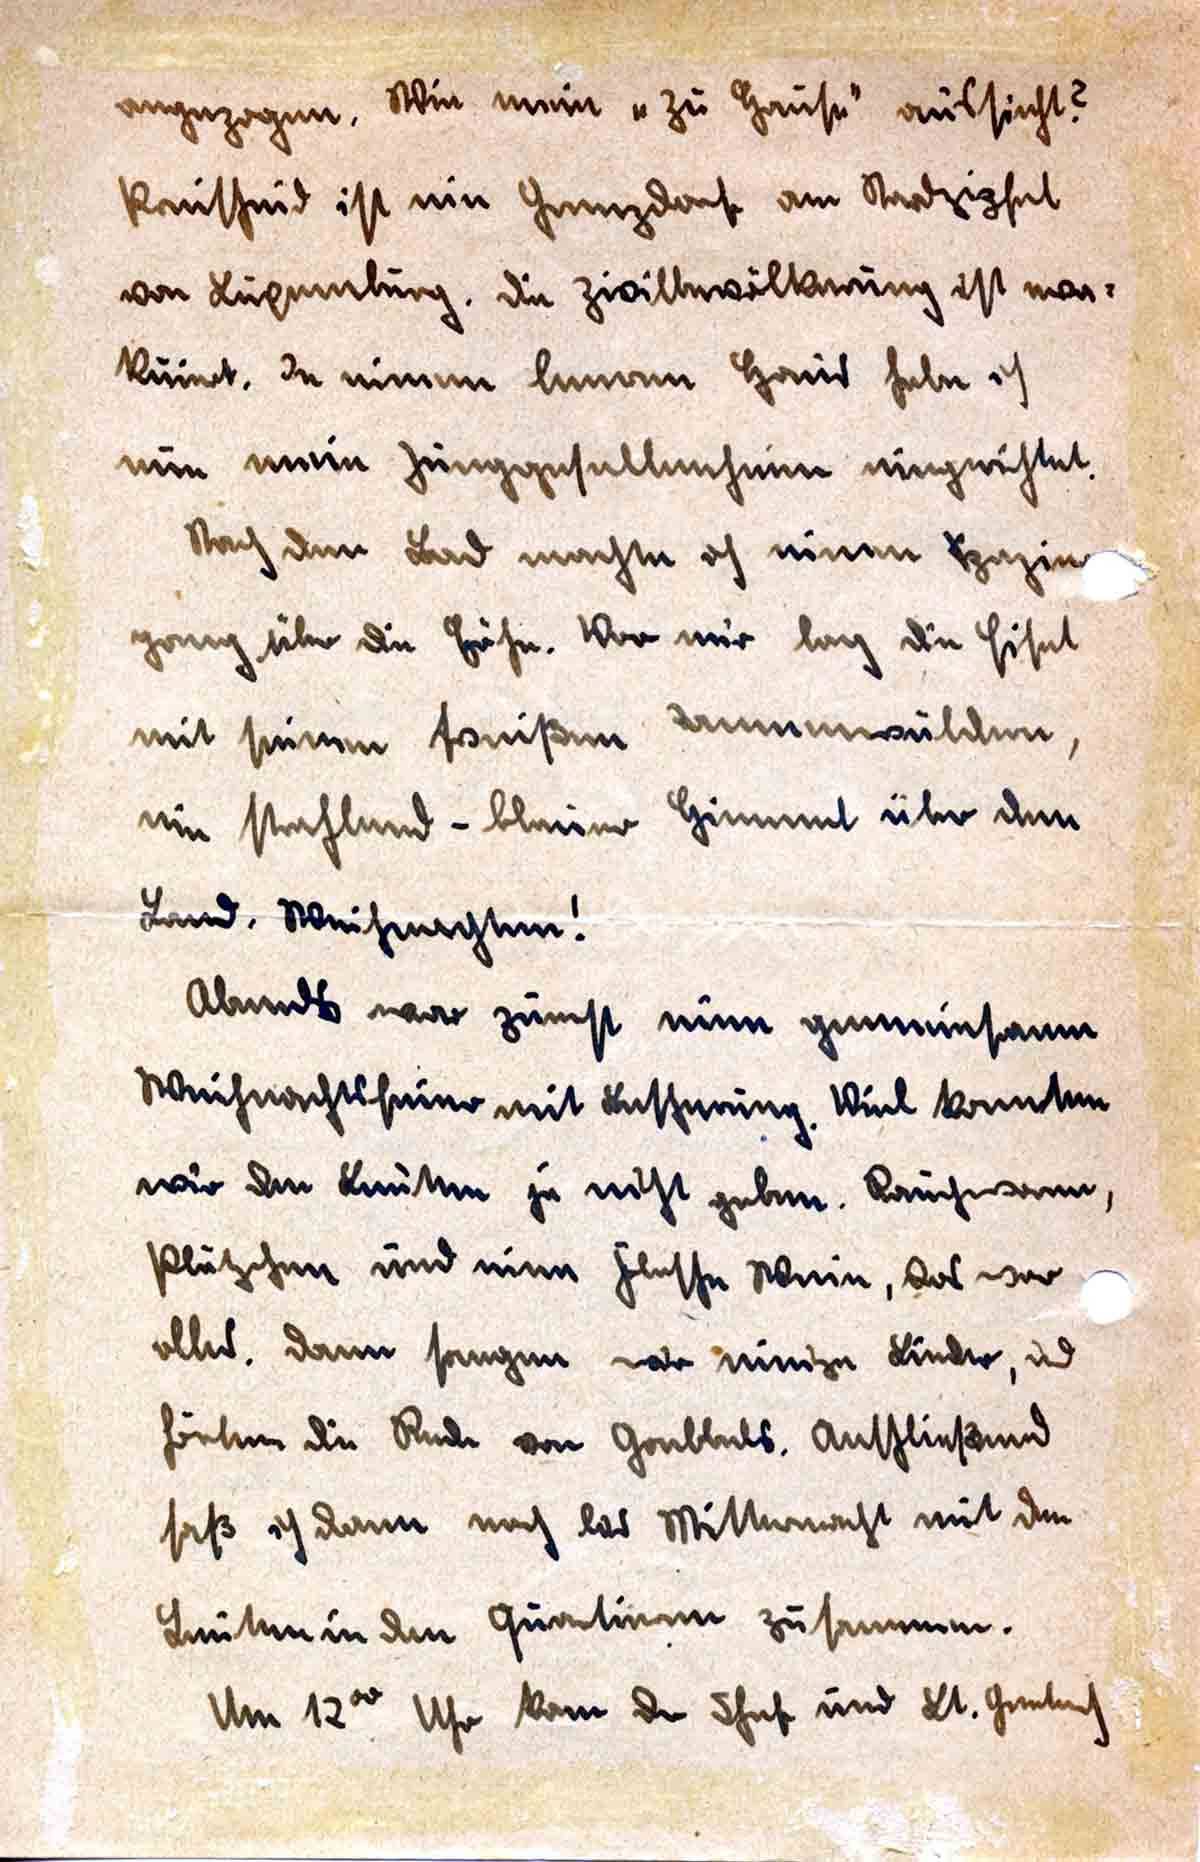 angezogen. Wie mein „zu Hause" aussieht?
ist ein Grenzdorf am Nordzipfel
von Luxemburg. Die Zivilbevölkerung ist eva=
kuiert. In einem leeren Haus habe ich
nun mein Junggesellenheim eingerichtet.
Nach dem Bad machte ich einen Spazier
gang über die Höhe. Vor mir lag die Eifel
mit seinen weißen Tannenwäldern,
ein strahlend-blauer Himmel über dem
Land. Weihnachten!
Abends war zuerst eine gemeinsame
Weihnachtsfeier mit Bescherung. Viel konnten
wir den Leuten ja nicht geben. Rauchwaren,
Plätzchen und eine Flasche Wein, das war
alles. Dann sangen wir einige Lieder, und
hörten die Rede von Goebbels. Anschließend
saß ich dann noch bis Mitternacht mit den
Leuten in den Quartieren zusammen.
Um 12⁰⁰ Uhr kam der Chef und Lt.